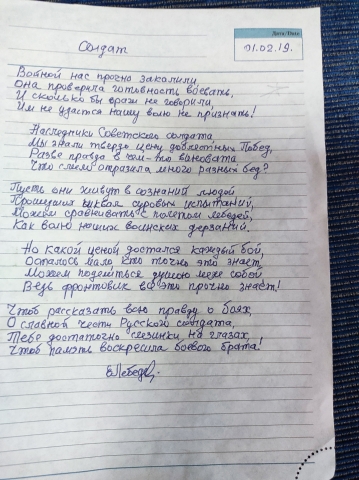 Дата/Date
01.02.19.
Солдат
Войной нас прочно закалили,
Она проверила готовность воевать,
И сколько бы враги не говорили,
Им не удастся нашу волю не признать!
Наследники Советского солдата
Мы знали твёрдо цену доблестных Побед,
Разве правда в чём-то виновата
Что смело отразила много разных бед?
Пусть они живут в сознаний людей
Прошедших суровых испытаний,
Можем сравнивать с полетом лебедей,
Как волю наших воинских дерзаний.
Но какой ценой достался каждый бой,
Осталось мало кто точно это знает,
Можем поделиться душою меж собой
Ведь фронтовик всё это прочно знает!
Чтоб рассказать всю правду о боях,
О славной чести Русского солдата,
Тебе достаточно слезинки на глазах,
Чтоб память воскресила боевого брата!